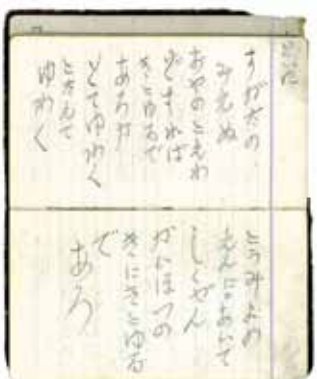 すがたの
みえぬ
おやのこえわ
どすれば
きこゆるで
あろか
とてゆわく
こたえて
ゆわく
とうみよの
えんにあいて
しくぜん
がいほつの
きにきこゆる
で
あろ